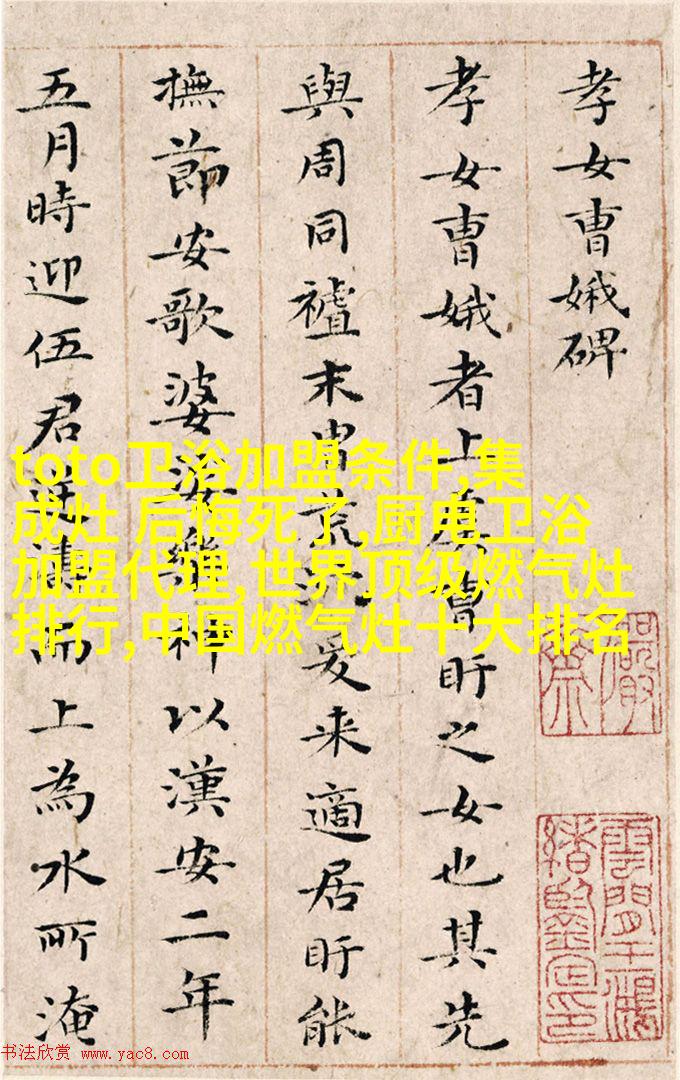 孝女曹娥碑
孝女曹娥者上虞曹盱之女也其先
與周同禠末胄荒沉爰来適居盱能
撫節安歌婆娑樂神以漢安二年
五月時迎伍君逆濤而上為水所淹
toto卫浴加盟条件,集
成灶 后悔死了,厨电卫浴
加盟代理,世界顶级燃气灶
排行,中国燃气灶十大排名
雲間王鴻
緒鑒定印
书法欣赏 www.yac8.com